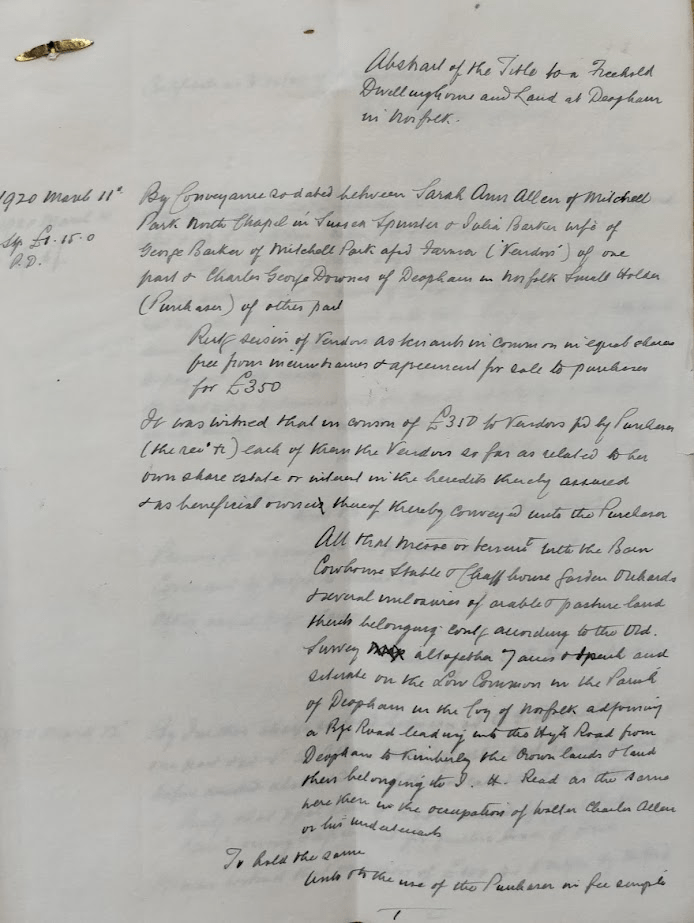 Abstract of the Title to a Freehold
Dwellinghouse and Land at Deopham
in Norfolk.
1920 March 11th
Stp. £1. 15. 0
P.D.
By Conveyance so dated between Sarah Ann Allen of Mitchell
Park North Chapel in Sussex Spinster & Julia Barker wife of
George Barker of Mitchell Park afsd Farmer ('Vendors') of one
part & Charles George Downes of Deopham in Norfolk Small Holder
(Purchaser) of other part
Rectg seisin of Vendors as tenants in common in equal shares
free from incumbrances & agreement for sale to purchaser
for £350
It was witnsd that in conson of £350 to Vendors pd by Purchaser
(the rect &c) each of them the Vendors so far as related to her
own share estate or interest in the heredits thereby assured
& as beneficial owner thereof thereby conveyed unto the Purchaser
All that messe or tenemt with the Barn
Cowhouse Stable & Chaffhouse garden Orchards
& several inclosures of arable & pasture land
thereto belonging contg according to the Ord.
Survey altogether 7 acres & and
situate on the Low Common in the Parish
of Deopham in the Coy of Norfolk adjoining
a Bye Road leading into the High Road from
Deopham to Kimberly the Crown lands & land
then belonging to J. H. Read as the same
were then in the occupation of Walter Charles Allen
or his undertenants
To hold the same
Unto & to the use of the Purchaser in fee simple
1